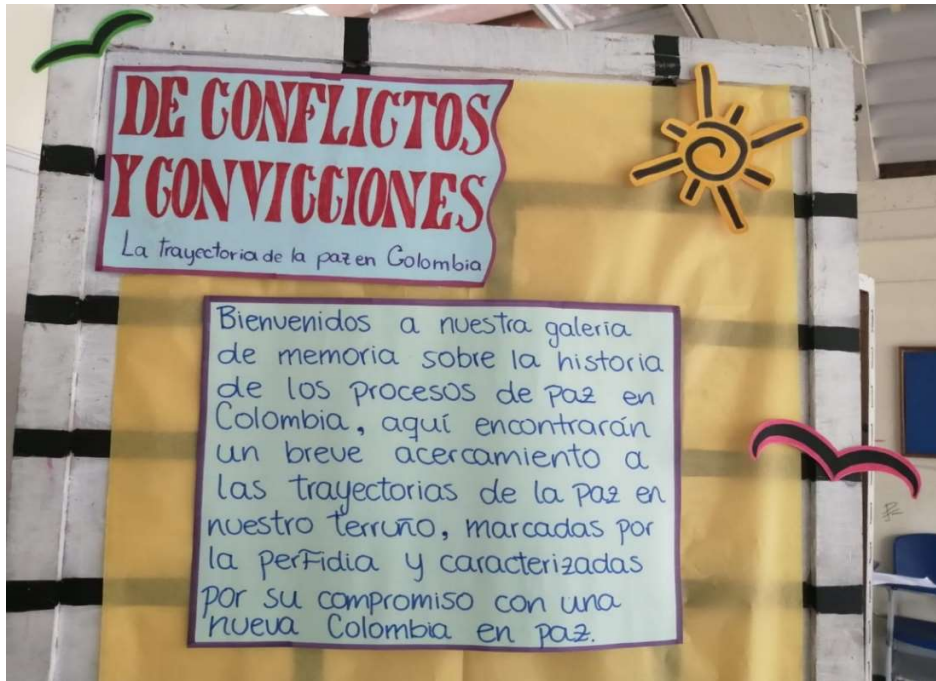 DE CONFLICTOS
Y CONVICCIONES
La trayectoria de la paz en Colombia
Bienvenidos a nuestra galeria
de memoria sobre la historia
de los procesos de paz en
Colombia, aquí encontrarán
un breve acercamiento a
las trayectorias de la paz en
nuestro terruño, marcadas por
la perfidia y caracterizadas
por su compromiso con una
nueva Colombia en paz.